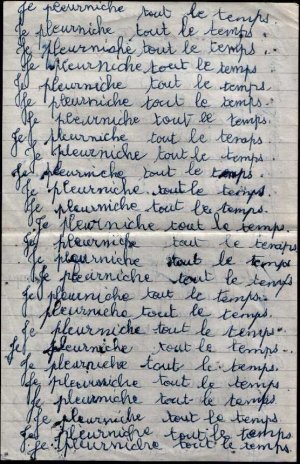 Je pleurniche tout le temps.
Je pleurniche tout le temps.
Je pleurniche tout le temps.
Je pleurniche tout le temps.
Je pleurniche tout le temps
Je pleurniche tout le temps.
Je pleurniche tout le temps.
Je pleurniche tout le temps
Je pleurniche tout le temps.
Je pleurniche tout le temps.
Je pleurniche tout le temps.
Je pleurniche tout le temps.
Je pleurniche tout le temps.
Je pleurniche tout le temps
Je pleurniche tout le temps
Je pleurniche tout le temps
Je pleurniche tout le temps.
Je pleurniche tout le temps.
Je pleurniche tout le temps.
Je pleurniche tout le temps.
Je pleurniche tout le temps.
Je pleurniche tout le temps.
Je pleurniche tout le temps
Je pleurniche tout le temps.
Je pleurniche tout le temps.
Je pleurniche tout le temps.